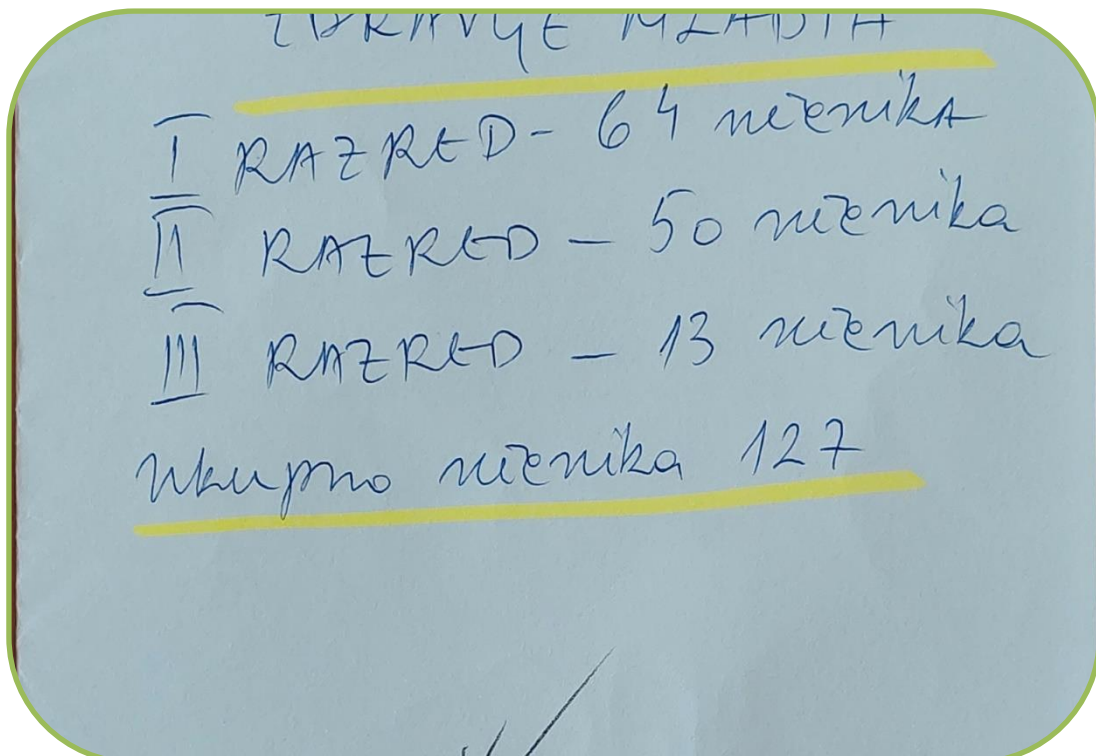 ZDRAVLJE MLADIH
I RAZRED - 64 učenika
II RAZRED - 50 učenika
III RAZRED - 13 učenika
Ukupno učenika 127